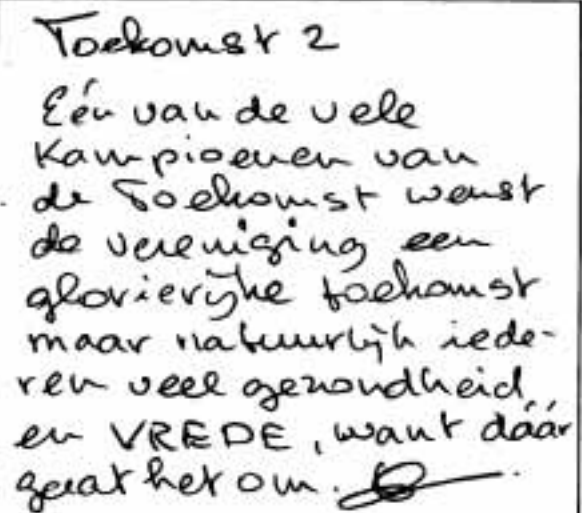 Toekomst 2
Eén van de vele
Kampioenen van
de Toekomst wenst
de vereniging een
glorierijke toekomst
maar natuurlijk iede-
ren veel gezondheid
en VREDE, want dáár
gaat het om.